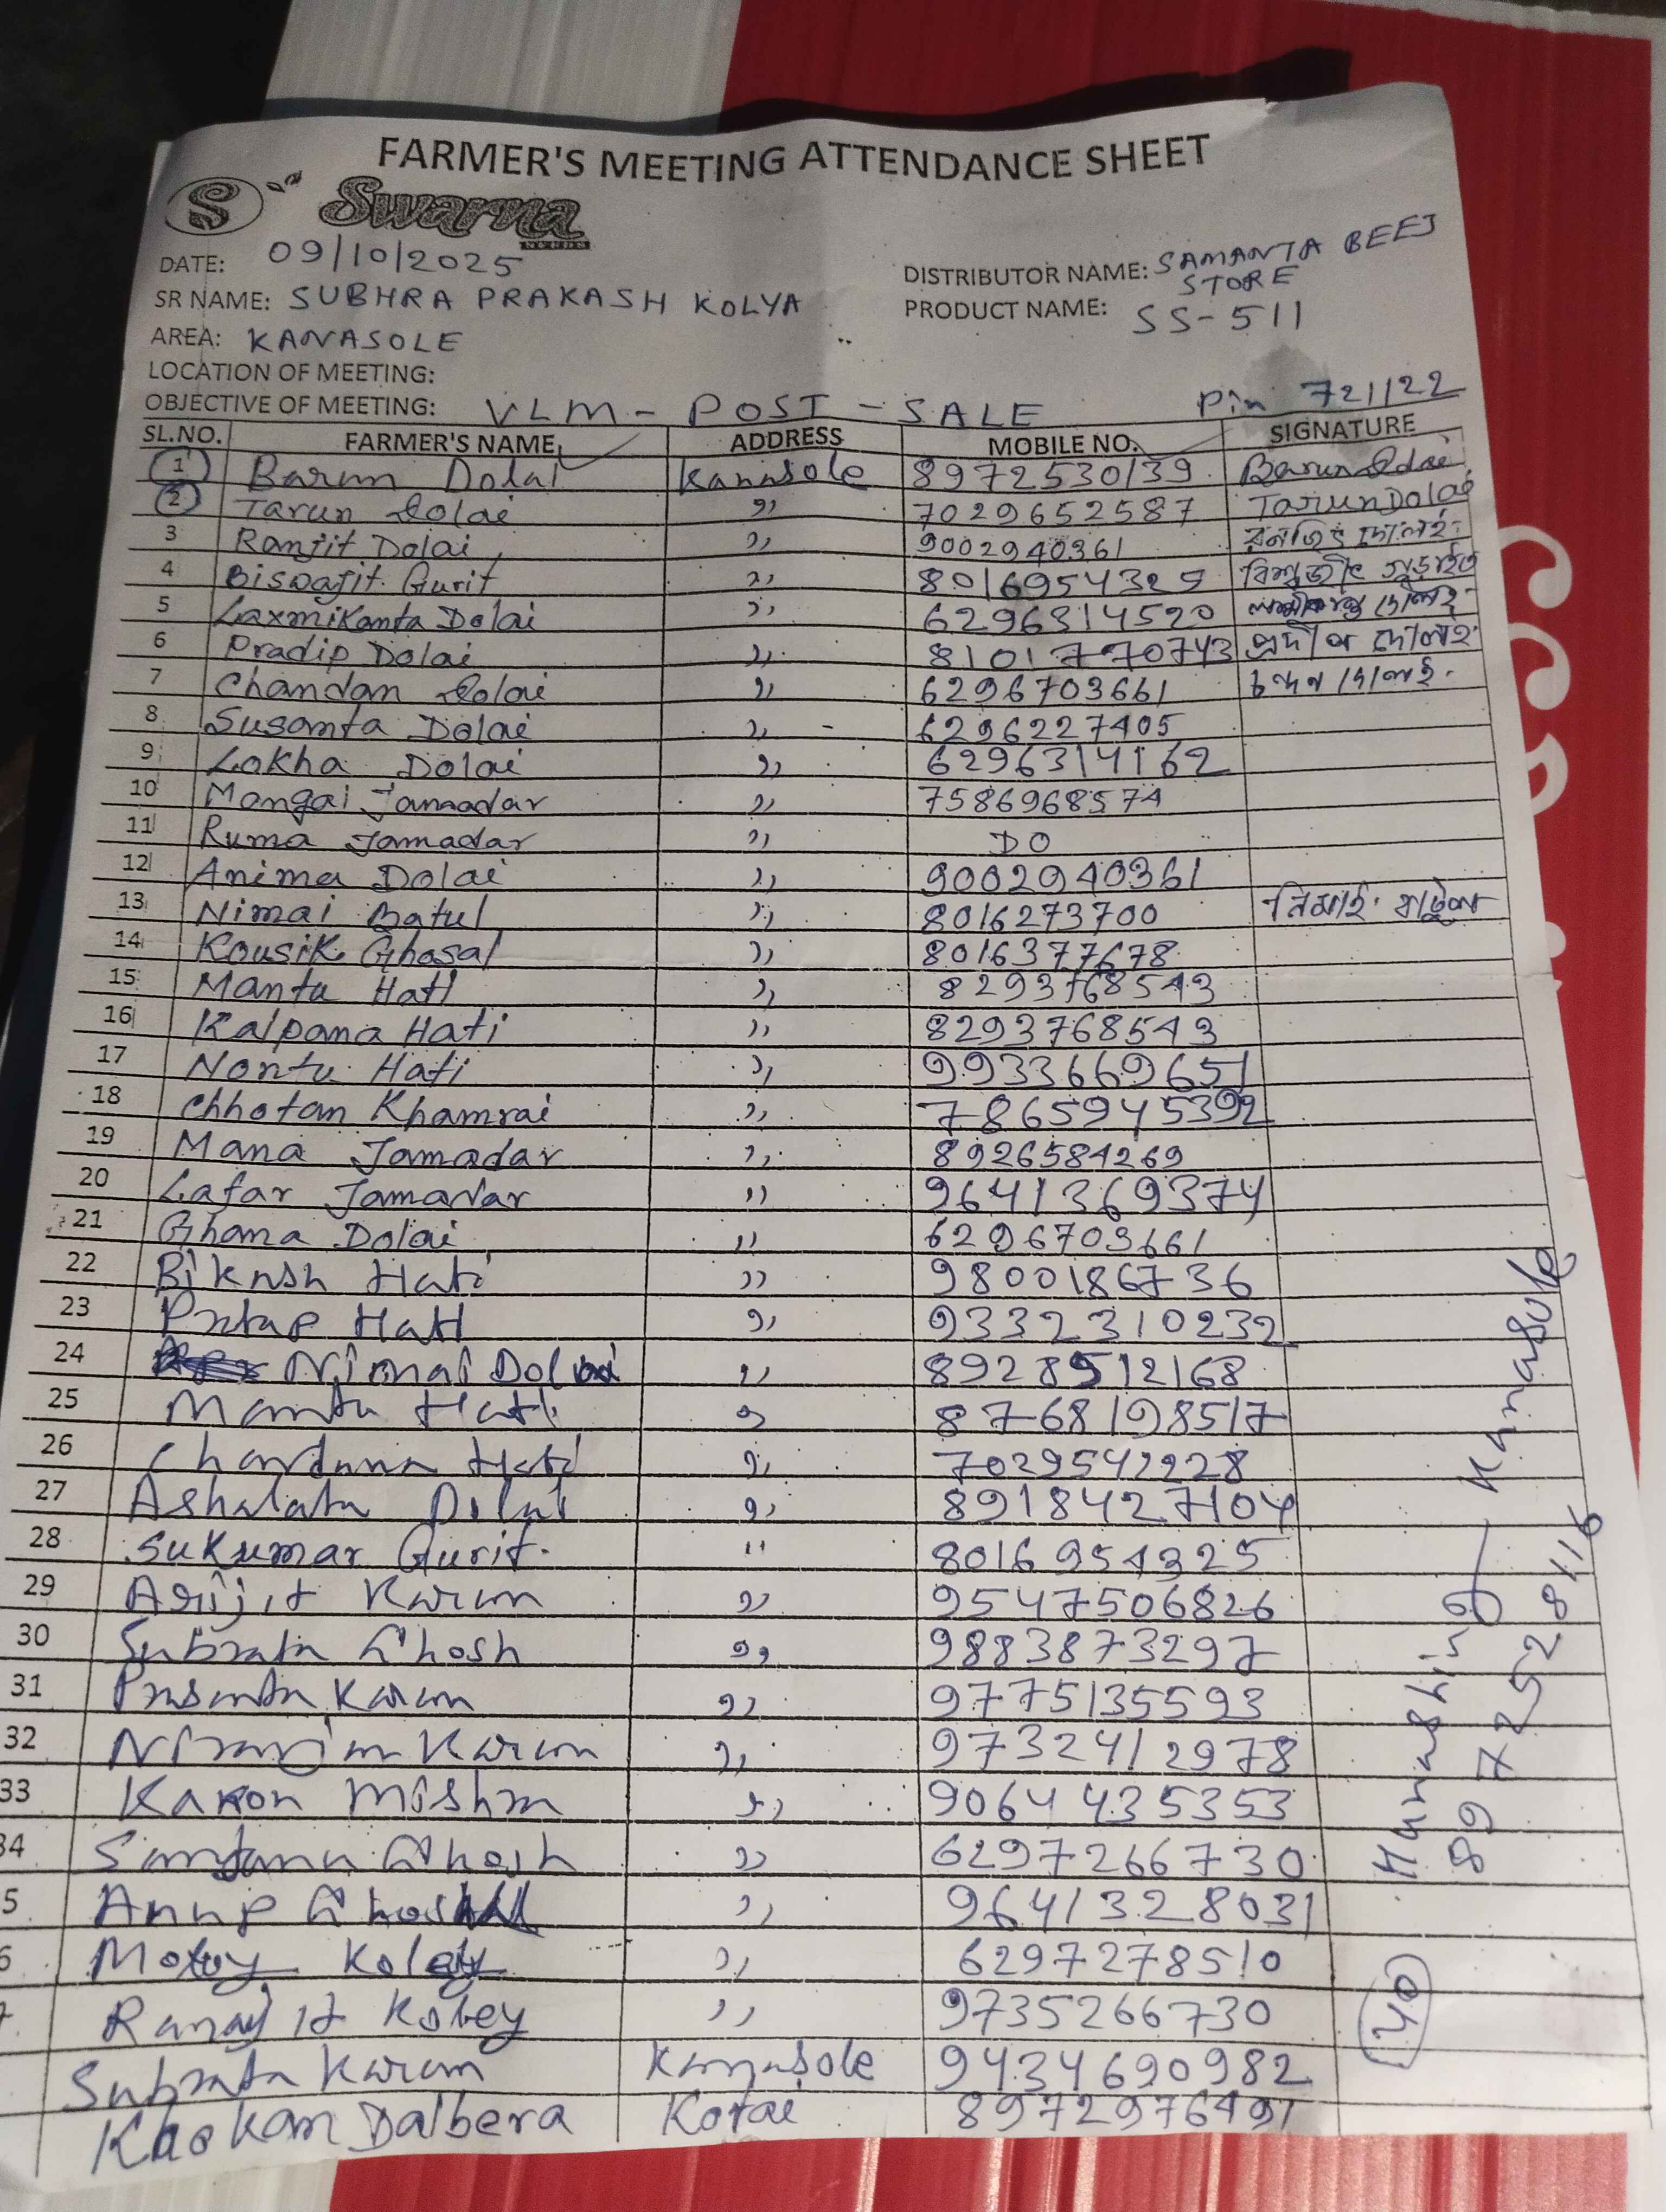 FARMER'S MEETING ATTENDANCE SHEET
S Swarna SEEDS
DATE: 09/10/2025
DISTRIBUTOR NAME: SAMANTA BEEJ STORE
SR NAME: SUBHRA PRAKASH KOLYA
PRODUCT NAME: SS-511
AREA: KANASOLE
LOCATION OF MEETING:
OBJECTIVE OF MEETING: VLM - POST - SALE Pin 721122
SL.NO. FARMER'S NAME ADDRESS MOBILE NO. SIGNATURE
1 Barun Dolai Kanasole 8972530139 Barun Dolai
2 Tarun Dolai ,, 7029652587 Tarun Dolai
3 Ranjit Dolai ,, 9002940361 রনজিৎ দোলই
4 Biswajit Gurit ,, 8016954325 বিশ্বজীৎ গুড়ইত
5 Laxmikanta Dolai ,, 6296314520
6 Pradip Dolai ,, 8101770743 প্রদীপ দোলই
7 Chandan Dolai ,, 6296703661 চন্দন দোলই
8 Susanta Dolai ,, 6296227405
9 Lokha Dolai ,, 6296314162
10 Mangal Jamadar ,, 7586968574
11 Ruma Jamadar ,, DO
12 Anima Dolai ,, 9002940361
13 Nimai Batul ,, 8016273700 নিমাই বাটুল
14 Kousik Ghosal ,, 8016377678
15 Mantu Hati ,, 8293768543
16 Kalpana Hati ,, 8293768543
17 Nontu Hati ,, 9933669651
18 Chhotan Khamrai ,, 7865945392
19 Mana Jamadar ,, 8926584269
20 Lafar Jamadar ,, 9641369374
21 Ghana Dolai ,, 6296703661
22 Bikash Hati ,, 9800186736
23 Pratap Hati ,, 9332310232
24 Nimai Dolai ,, 8928512168
25 Mantu Hati ,, 8768198517
26 Chandana Hati ,, 7029542228
27 Ashalata Dolai ,, 8918427104
28 Sukumar Gurit ,, 8016954325
29 Arijit Karan ,, 9547506826
30 Subrata Ghosh ,, 9883873297
31 Prasanta Karan ,, 9775135593
32 Niranjan Karan ,, 9732412978
33 Kanon Mishra ,, 9064435353
34 Ghosh ,, 6297266730
5 Anup Ghosh ,, 9641328031
6 Koley ,, 6297278510
7. Ranajit Koley ,, 9735266730
Subrata Karan Kanasole 9434690982
Khokan Dalbera Kotai 8972976491
Kanasole
8972528416
40